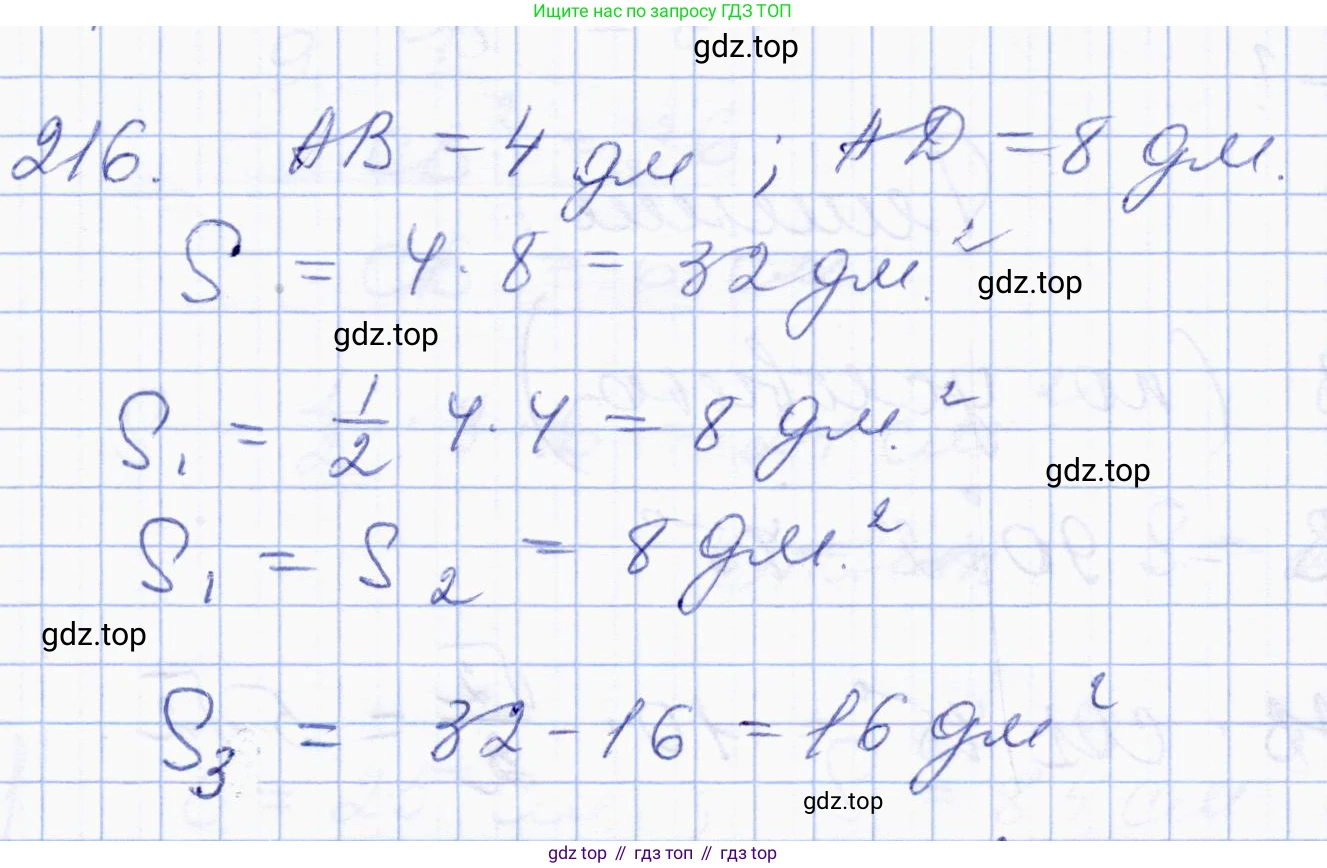 Ищите нас по запросу ГДЗ ТОП
gdz.top
216. AB = 4 дм ; AD = 8 дм.
S = 4 · 8 = 32 дм.²
gdz.top
gdz.top
S₁ = 1/2 4 · 4 = 8 дм.²
gdz.top
S₁ = S₂ = 8 дм.²
gdz.top
S₃ = 32 - 16 = 16 дм²
gdz.top
gdz top // гдз топ // gdz top